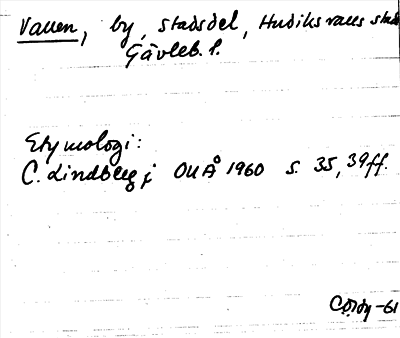 Vallen, by, stadsdel, Hudiksvalls stad
Gävleb. l.
Etymologi:
C. Lindberg i OUÅ 1960 s. 35, 39ff.
-61